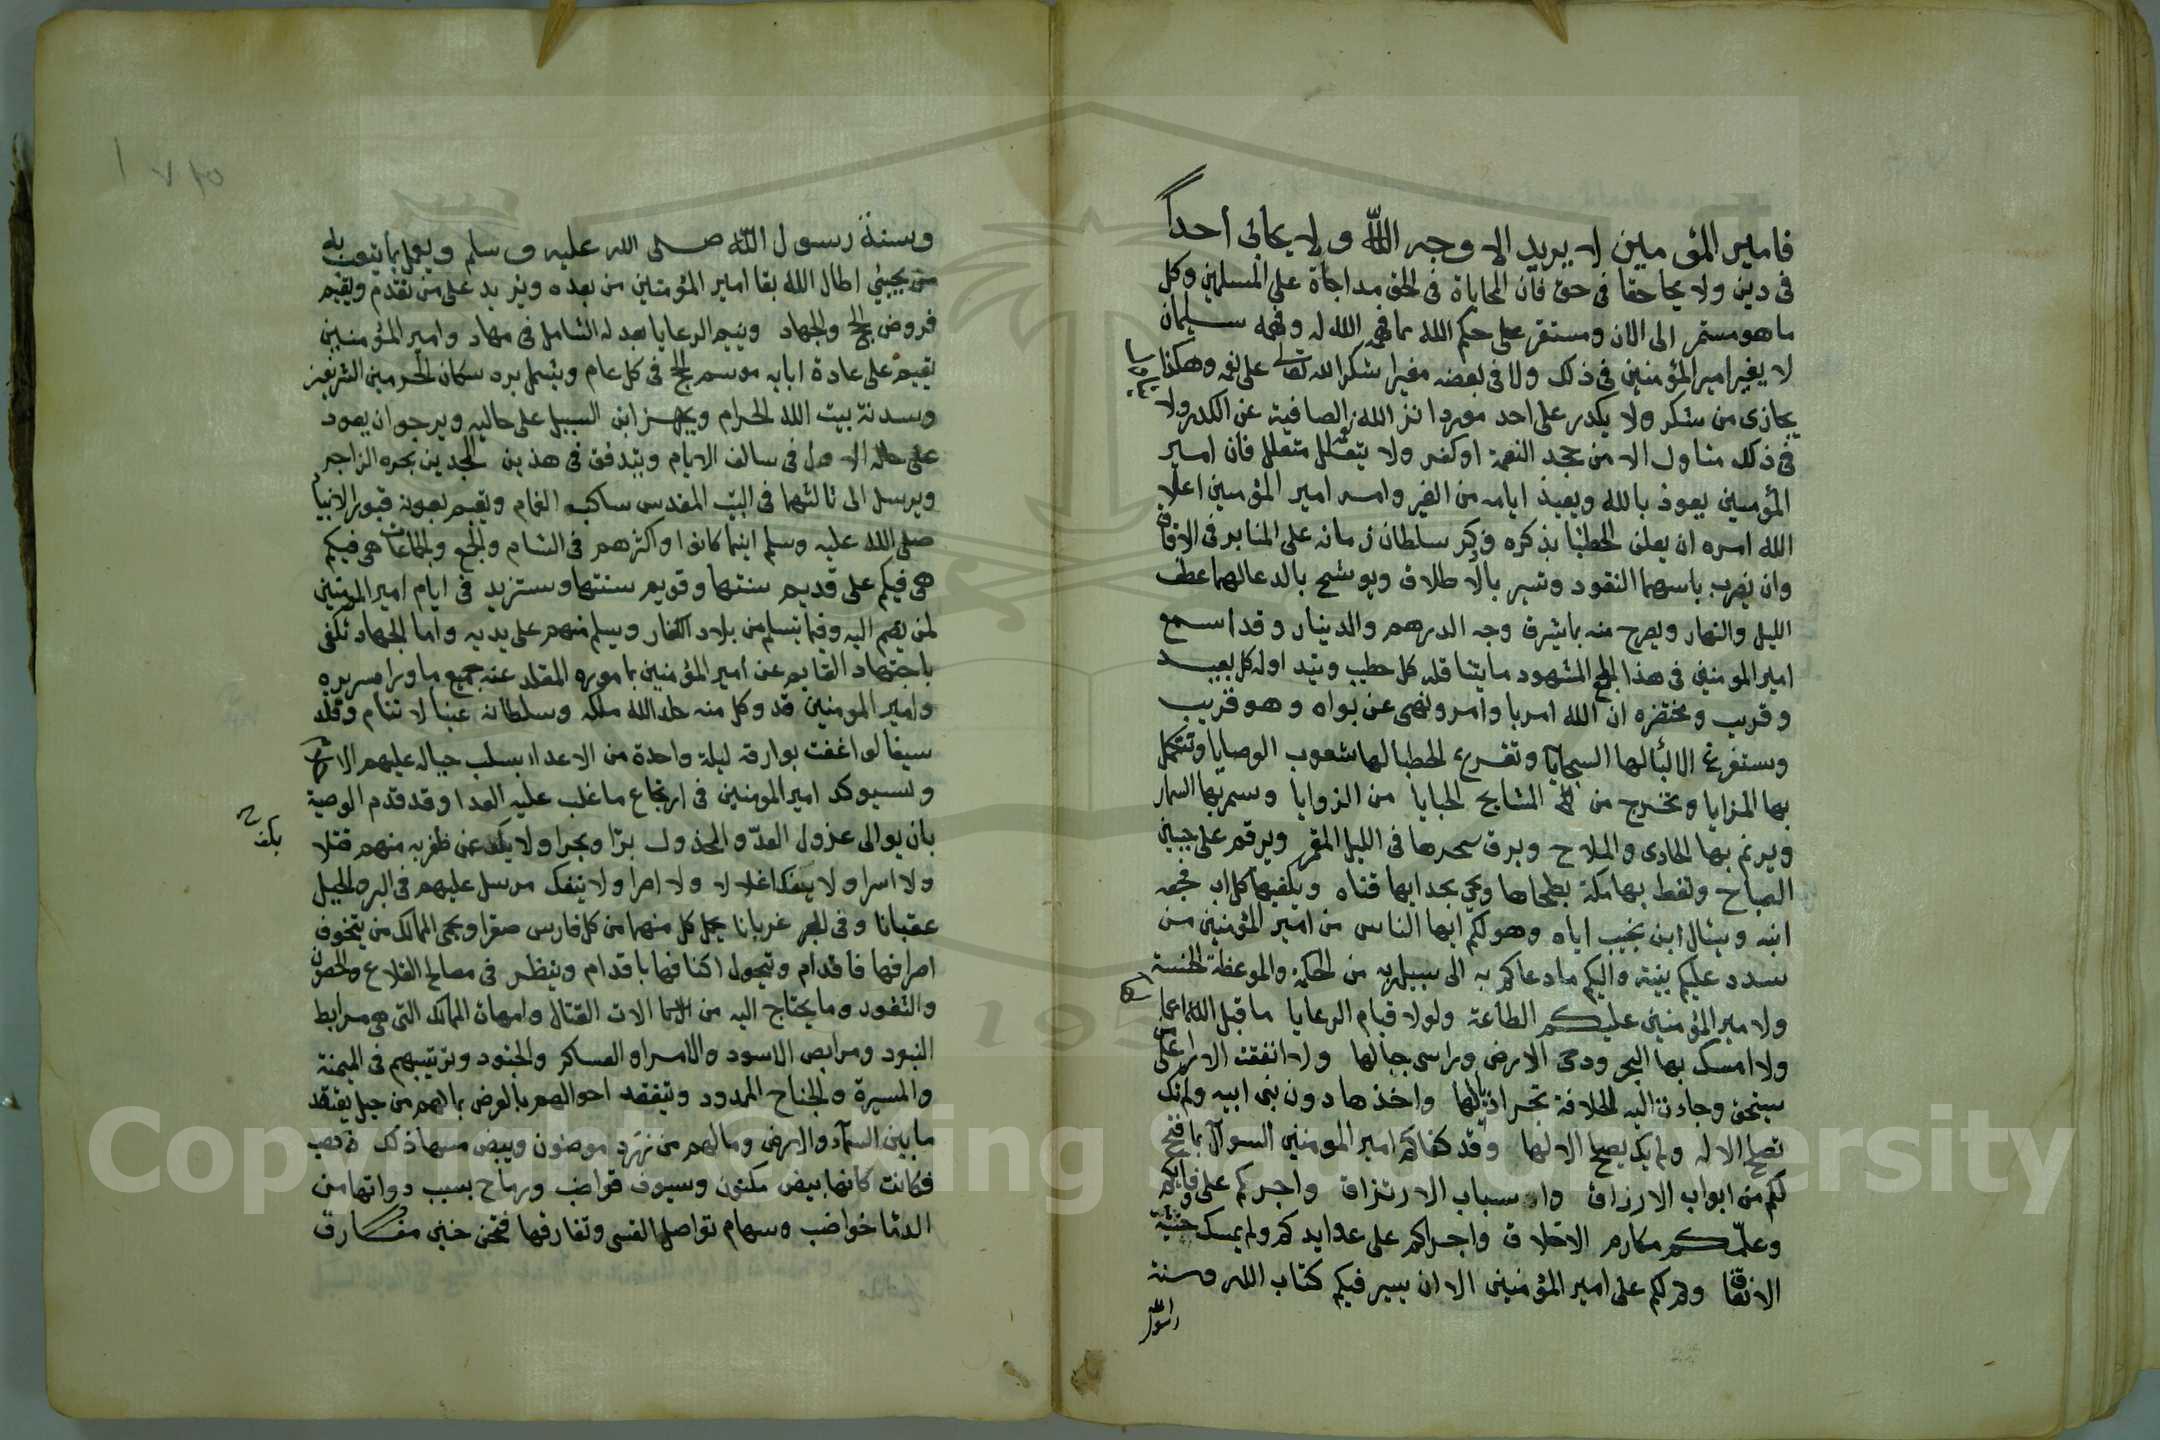 فامير المؤمنين لا يريد الا وجه الله ولا يحابى أحداً
فى دين ولا يحا حقا فى حق فان المحاباة فى الحق مداجاة على المسلمين وكل
ما هو مستمر الى الان ومستقر على حكم الله مما فهمه الله له وفهمه سليمان
لا يغير امير المؤمنين فى ذلك ولا فى بعضه مغيرا شكرا لله تعالى على نعمه وهكذا
يجازى من شكر ولا يكدر على احد موردا نز الله الصافية عن الكدر ولا
فى ذلك متاول الا من جحد النعمة او كفر ولا يتعلل متعلل فان امير
المؤمنين يعوذ بالله ويعيذ ايامه من الغير وامر امير المؤمنين اعلا
الله امره ان يعلن الخطبا بذكره وذكر سلطان زمانه على المنابر فى الافاق
وان يضرب باسمهما النقود وتسير بالاطلاق ويوشح بالدعا لهما عطف
الليل والنهار ويصرح منه بما يشرق وجه الدرهم والدينار وقد اسمع
امير المومنين فى هذا الجمع المشهود ما يتناقله كل خطيب ويتداوله كل بعيد
وقريب ومختصره ان الله امر باوامر ونهى عن نواه وهو قريب
وستفرغ الالبا لها السجايا وتفرع الخطبا لها شعوب الوصايا وتتكمل
بها المزايا وتخرج من المشايخ الخبايا من الزوايا وسمر بها السمار
ويرنم بها الحادى والملاح ويرق سحرها فى الليل المقمر ويرقم على جبين
الصباح وتعط بها مكة بطحاها ويحي بحدايها قناه ويلقيها كل اب فهمه
ابنه ويسال ابن نجيب اباه وهو لكم ايها الناس من امير المؤمنين من
سدد عليكم بينة واليكم ما دعاكم به الى سبيل ربه من الحكمة والموعظة الحسنة
ولامير المؤمنين عليكم الطاعة ولولا قيام الرعايا ما قبل الله اعمالها
ولا امسك بها البحر ودحى الارض وراسى جبالها ولا اتفقت الارا على من
يستحق وجاءت اليه الخلافة تجر اذيالها واخذها دون بنى ابيه ولم تك
تصلح الا له ولم يك يصلح الا لها وقد كفاكم امير المومنين السوال بما فتح
لكم من ابواب الارزاق واسباب الارتزاق واجركم على وفاقكم
وعلمكم مكارم الاخلاق واجراكم على عوايدكم ولم يمسك خشية
الانفاق ولم لكم على امير المؤمنين الا ان يسير فيكم كتاب الله وسنة
رسول الله
وسنة رسول الله صلى الله عليه وسلم ويعمل بما يتوب به
من يجيئ اطال الله بقا امير المؤمنين من بعده ويزيد على من تقدم ويقيم
فروض الحج والجهاد وينيم الرعايا بعدله الشامل فى مهاد وامير المؤمنين
يقيم على عادة ابايه موسم الحج فى كل عام ويشمل بره سكان الحرمين الشريفين
وسدنة بيت الله الحرام ويجهز ابن السبيل على حاليه ويرجو ان يعود
على حاله الاول فى سالف الايام ويتدفق فى هذين المسجدين بحره الزاخر
ويرسل الى ثالثهما فى البيت المقدس ساكب الغمام ويقيم بعونه قبور الانبيا
صلى الله عليه وسلم اينما كانوا واكثرهم فى الشام والجمع والجماعات هى فيكم
هى فيكم على قديم سنتها وقويم سنتها وستزيد فى ايام امير المومنين
لمن يضم اليه وفيما يتسلم من بلاد الكفار ويسلم منهم على يديه واما الجهاد فكفى
باجتهاد القايم عن امير المؤمنين بماموره المقلد عنه جميع ما ورا سريره
وامير المومنين قد وكل منه خلد الله ملكه وسلطانه عينا لا تنام وقلد
سيفا لو اغفت بوارقه ليلة واحدة من الاعداء بسلب خياله عليهم الاحلام
وسيوكد امير المومنين فى ارتجاع ما غلب عليه العدا وقد قدم الوصية
بان يوالى غزول العدو المخذول برا وبحرا ولا يكف عن ظفر به منهم قتلا
ولا اسرا ولا يفك اغلالا ولا اصرا ولا ينفك مرسل عليهم فى البر والخيل
عقبانا وفى البحر غربانا يحمل كل منهما من كل فارس صقرا ويحمى الممالك من يتخوف
اطرافها فاقدام ويتحول اكنافها باقدام وينظر فى مصالح القلاع والحصون
والثغور وما يحتاج اليه من الات القتال وامهات الممالك التى هى مرابط
البنود ومرابض الاسود والامراء والعساكر والجنود وترتيبهم فى الميمنة
والميسرة والجناح الممدود ويتفقد احوالهم بالعرض بما لهم من خيل يعتقد
ما بين السماء والارض وما لهم من زرد موضون وبيض مسها ذائب ذهب
فكانت كانها بيض مكنون وسيوف قواضب ورماح بسبب دواتها من
الدما خواضب وسهام تواصل القسى وتفارقها فتحن حنين مفارق